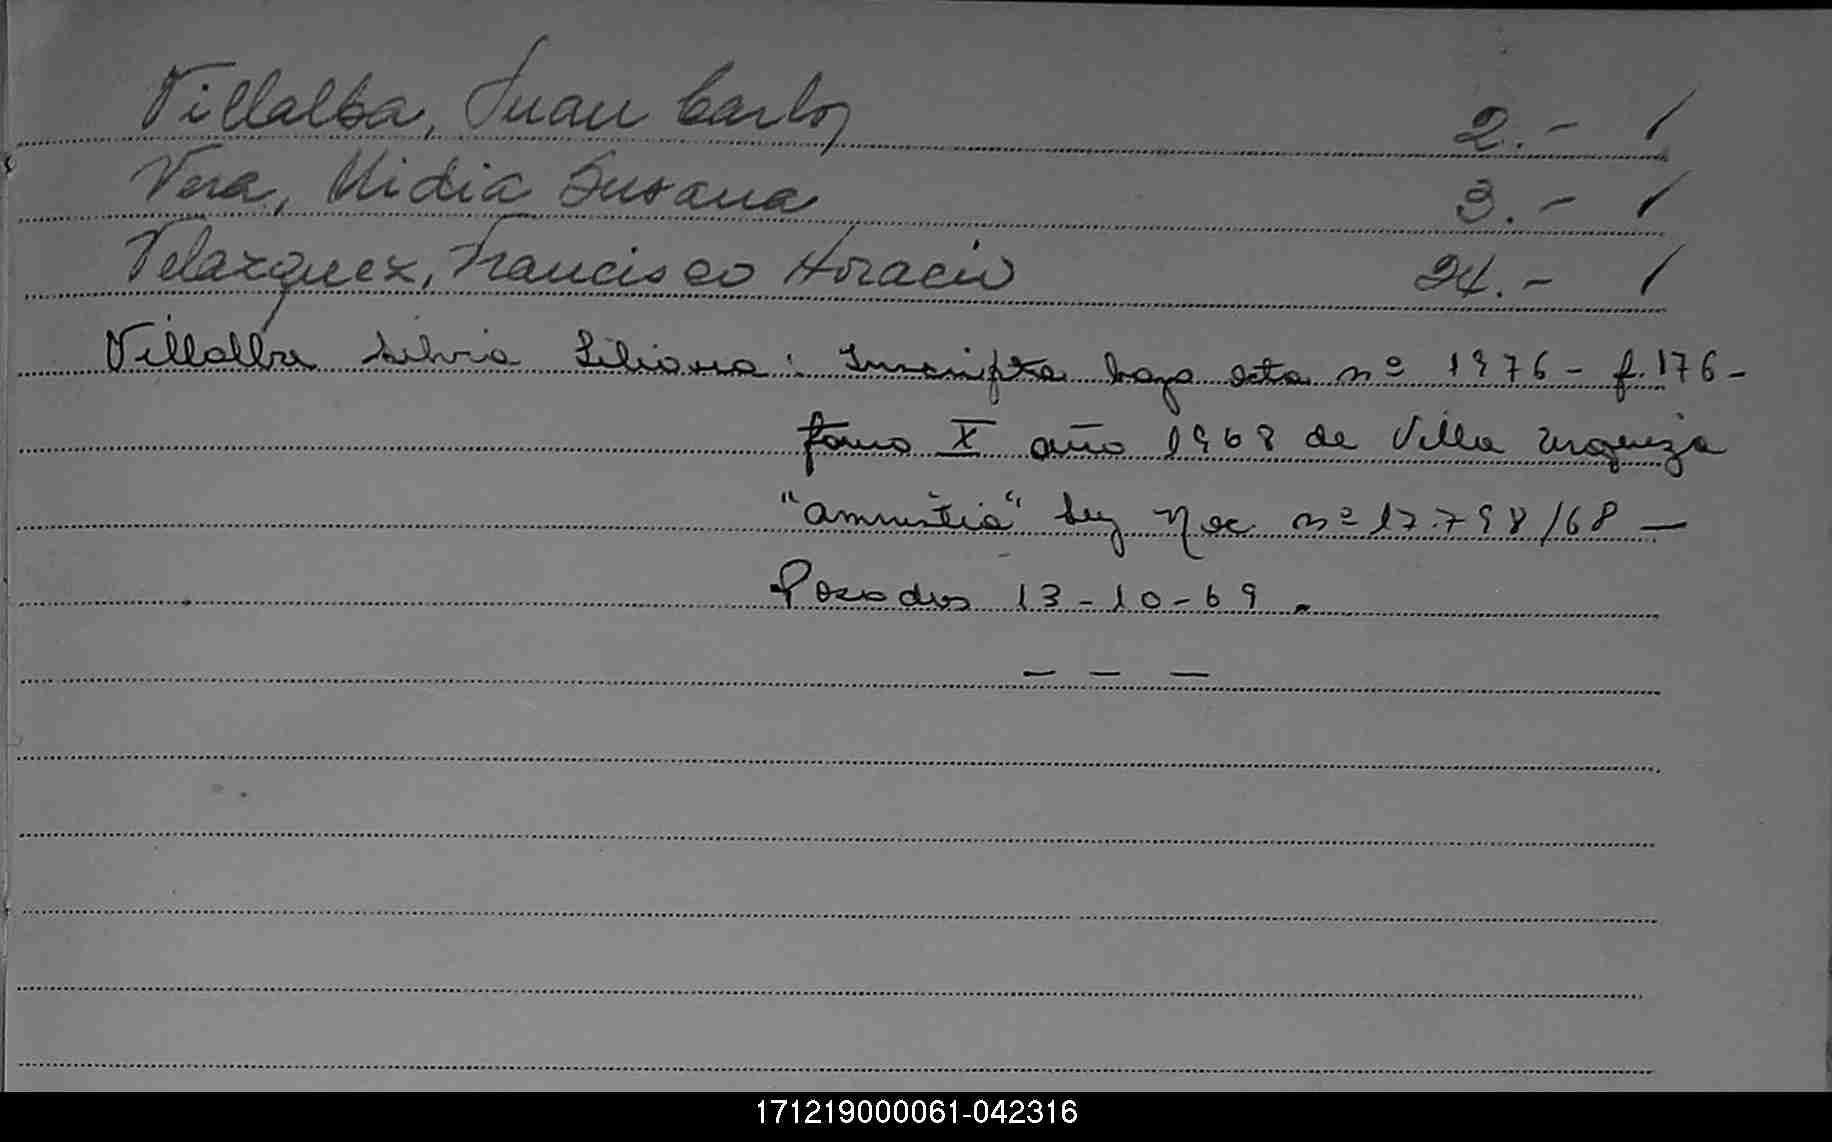 Villalba, Juan Carlos 2.- 1
Vera, Nidia Susana 3.- 1
Velazquez, Francisco Horacio 24.- 1
Villalba Silvia Liliana: Inscripta bajo acta nº 1976 - f. 176 -
tomo X año 1968 de Villa Urquiza
"amnistia" Ley Nac nº 17.798/68 —
Posadas 13-10-69.
— — —
171219000061-042316